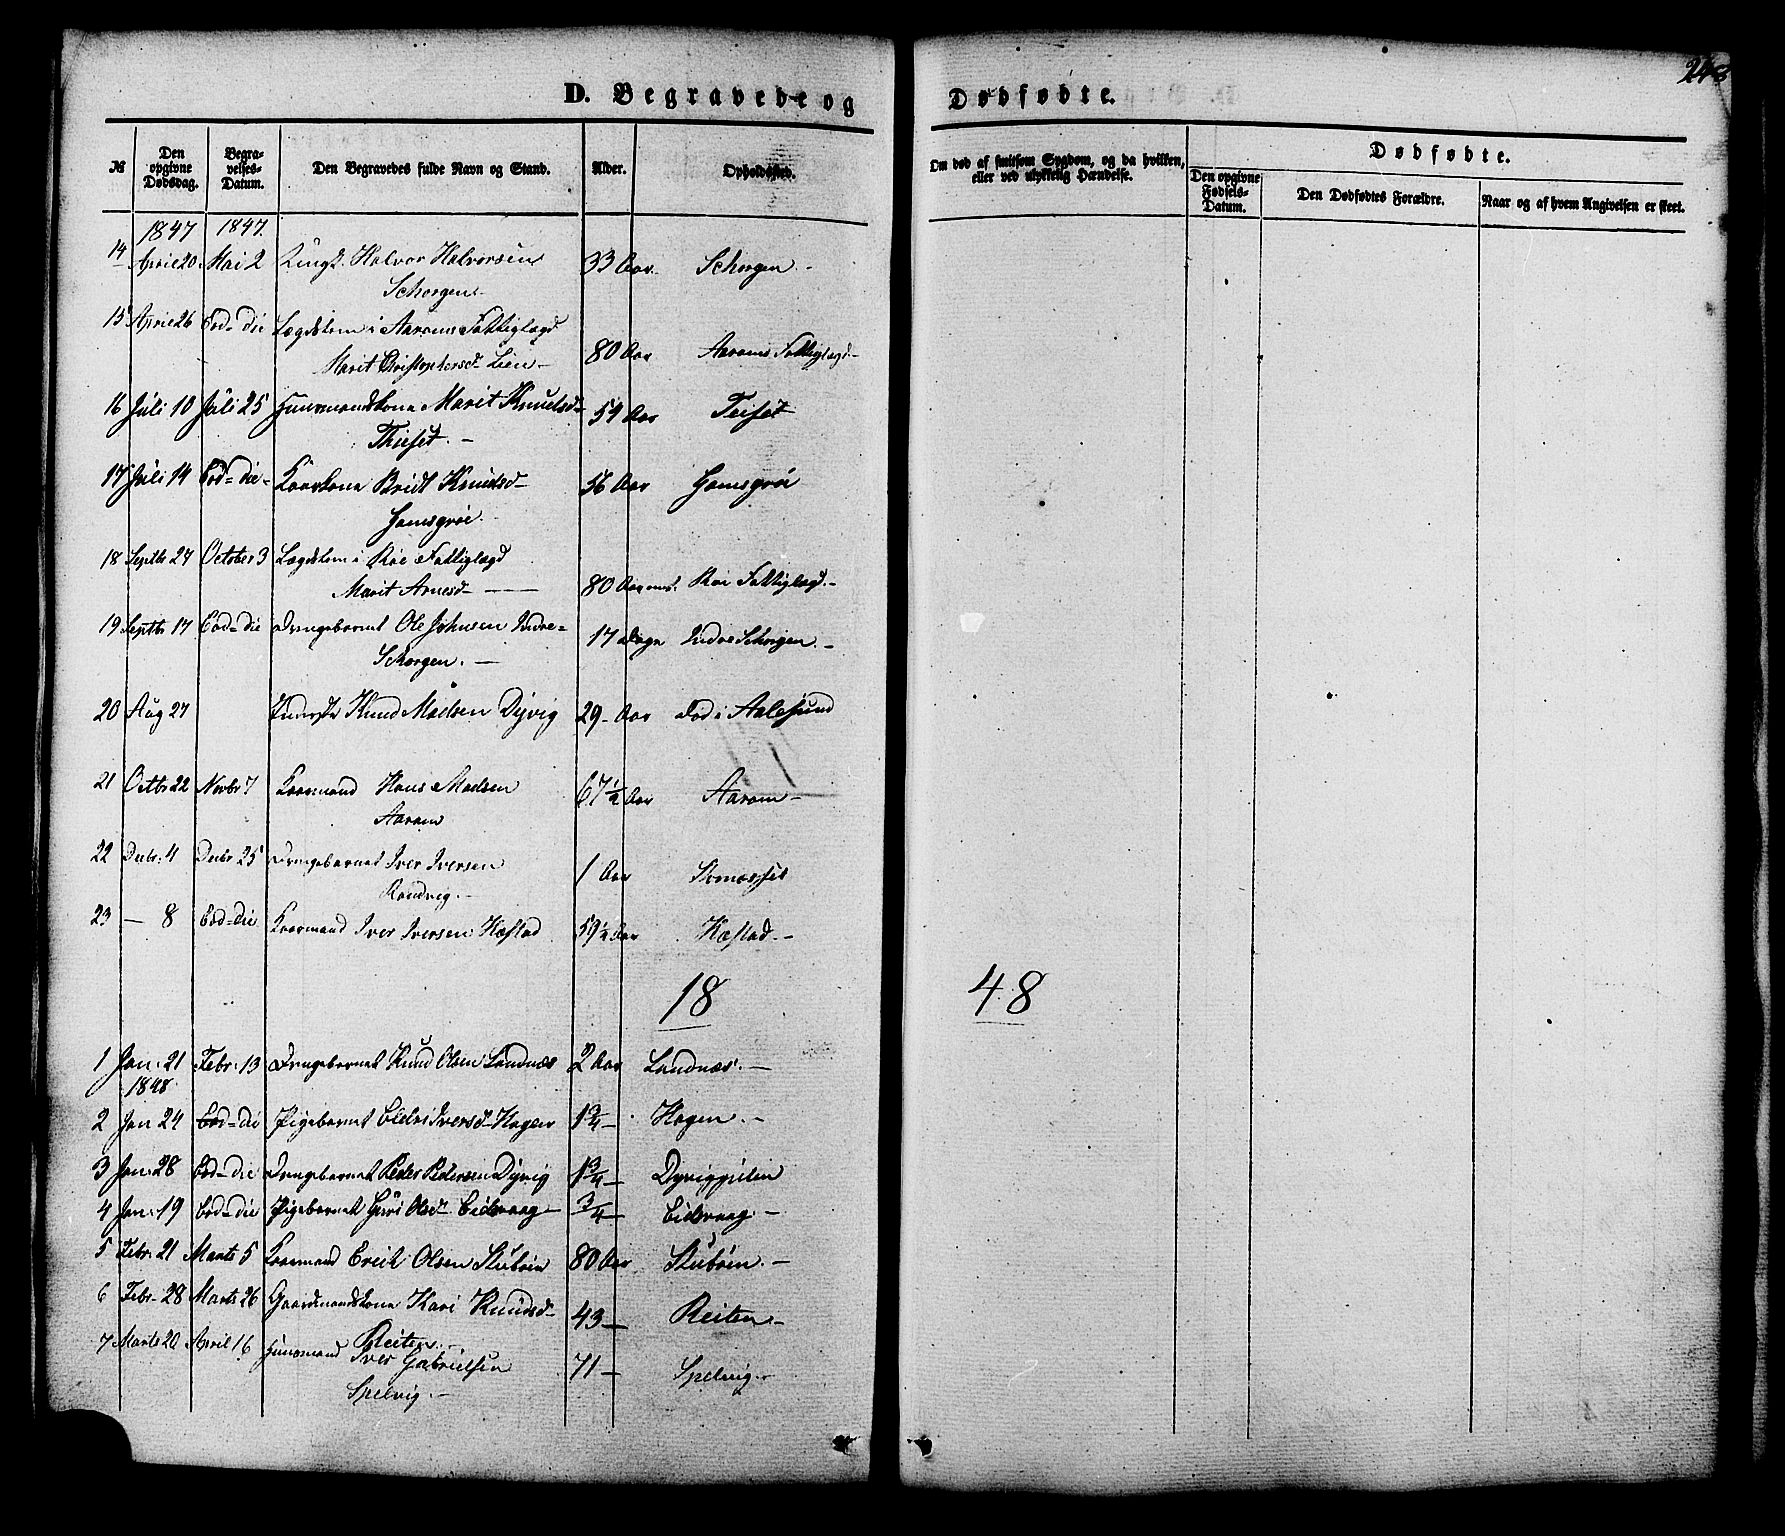 248
D. Begravede og Dødfødte.
№ Den opgivne Dødsdag. Begravelses-Datum. Den Begravedes fulde Navn og Stand. Alder. Opholdssted. Om død af smitsom Sygdom, og da hvilken, eller ved ulykkelig Hændelse. Dødfødte.
Den opgivne Fødsels-Datum. Den Dødfødtes Forældre. Naar og af hvem Angivelsen er skeet.
1847 1847.
14 April 20. Mai 2 Halvor Halvorsen 33 Aar. Schorgen.-
Schorgen.
15 April 26 Eod-die Lægdslem i Aarams Fattiglægd
Marit Christophersd- Lien- 80 Aar Aarams Fattiglægd.-
16 Juli 10 Juli 25 Huusmandskone Marit Knudsd- 59 Aar Teiset
Thieset.-
17 Juli 14 Eod-die- Kaarkone Bridt Knudsd- 56 Aar Hamsgrøe
Hamsgrøe.
18 Septbr 27 October 3 Lægdslem i Røe Fattiglægd
Marit Arnesd- 80 Aar Røe Fattiglægd.-
19 Septbr 17 Eod-die Drengebarnet Ole Johnsen Indre- 17 Dage Indre Schorgen.-
Schorgen.-
20 Aug 27 Knud Madsen Dyvig 29- Aar Død i Aalesund
21 Octbr 22 Novbr 7 Kaarmand Hans Madsen 67½ Aar Aaram-
Aaram
22 Decbr. 4 Decbr 25 Drengebarnet Iver Iversen 1 Aar
Randvig.-
23 - 8 Eod-die Kaarmand Iver Iversen Hæstad 59½ Aar Hæstad.-
18 48
1 Jan. 21 Febr. 13 Drengebarnet Knud Olsen Landnæs 2 Aar Landnæs.-
1848.
2 Jan 24 Eod-die Pigebarnet Iversd- Hagen 1¾- Hagen.-
3 Jan. 28 Eod-die Drengebarnet Peder Pedersen Dyvig 1¾-
4 Jan. 19 Eod-die Pigebarnet Guri Olsd- Eidsvaag ¾- Eidsvaag.-
5 Febr. 21 Marts 5 Kaarmand Erich Olsen Stubøen 80 Aar Stubøen.-
6 Febr. 28 Marts 26 Gaardmandskone Kari Knudsd- 43- Reiten-
Reiten.-
7 Marts 20 April 16 Huusmand Iver Gabrielsen 71- Spelvig.-
Spelvig.-